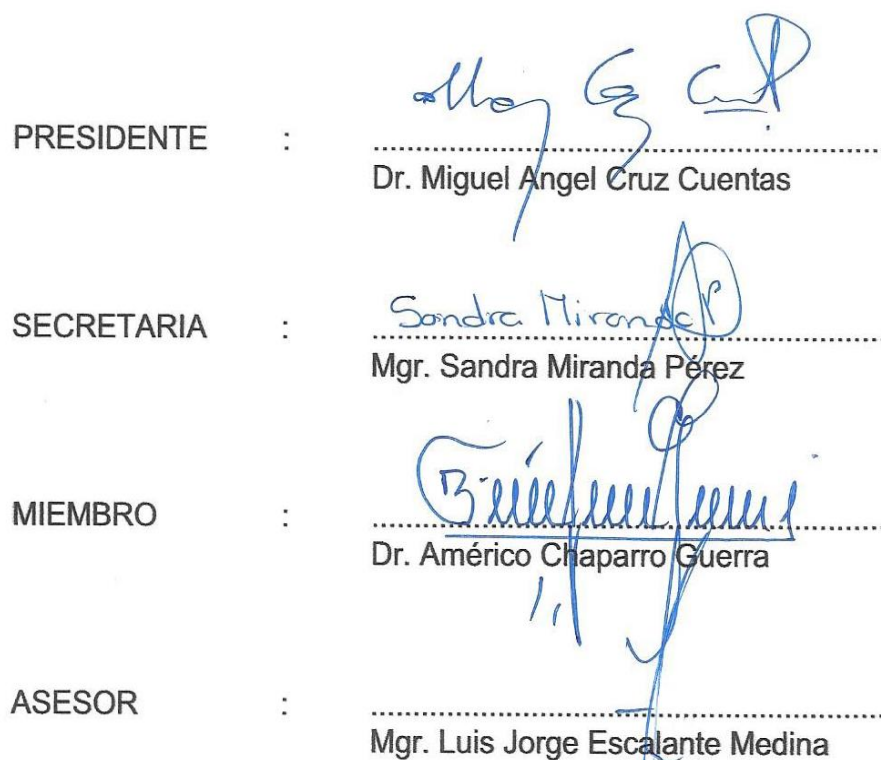 PRESIDENTE : ........................................................
Dr. Miguel Angel Cruz Cuentas
Sandra Miranda
SECRETARIA : ........................................................
Mgr. Sandra Miranda Pérez
MIEMBRO : ........................................................
Dr. Américo Chaparro Guerra
ASESOR : ........................................................
Mgr. Luis Jorge Escalante Medina